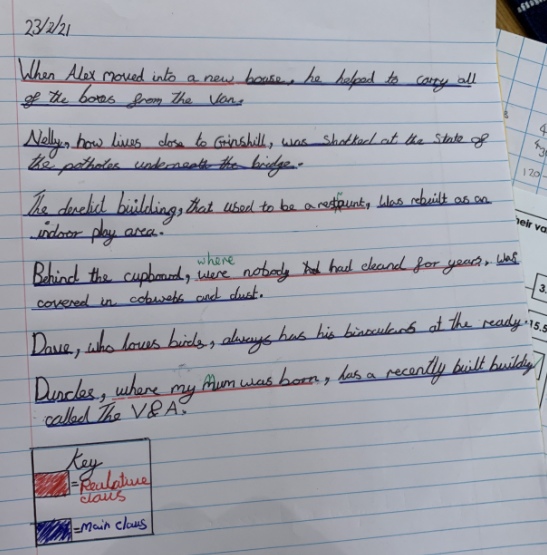 23/2/21
When Alex moved into a new house, he helped to carry all
of the boxes from the van.
Nelly, how lives close to Grinshill, was shocked at the state of
the potholes underneath the bridge.
The derelict building, that used to be a , was rebuilt as an
indoor play area.
where
Behind the cupboard, were nobody had cleand for years, was
covered in cobwebs and dust.
Dave, who loves birds, always has his binoculars at the ready.
, where my Mum was born, has a recently built building
called The V&A.
Key
= Realative
claus
= Main claus
120
heir va
3.
15.5